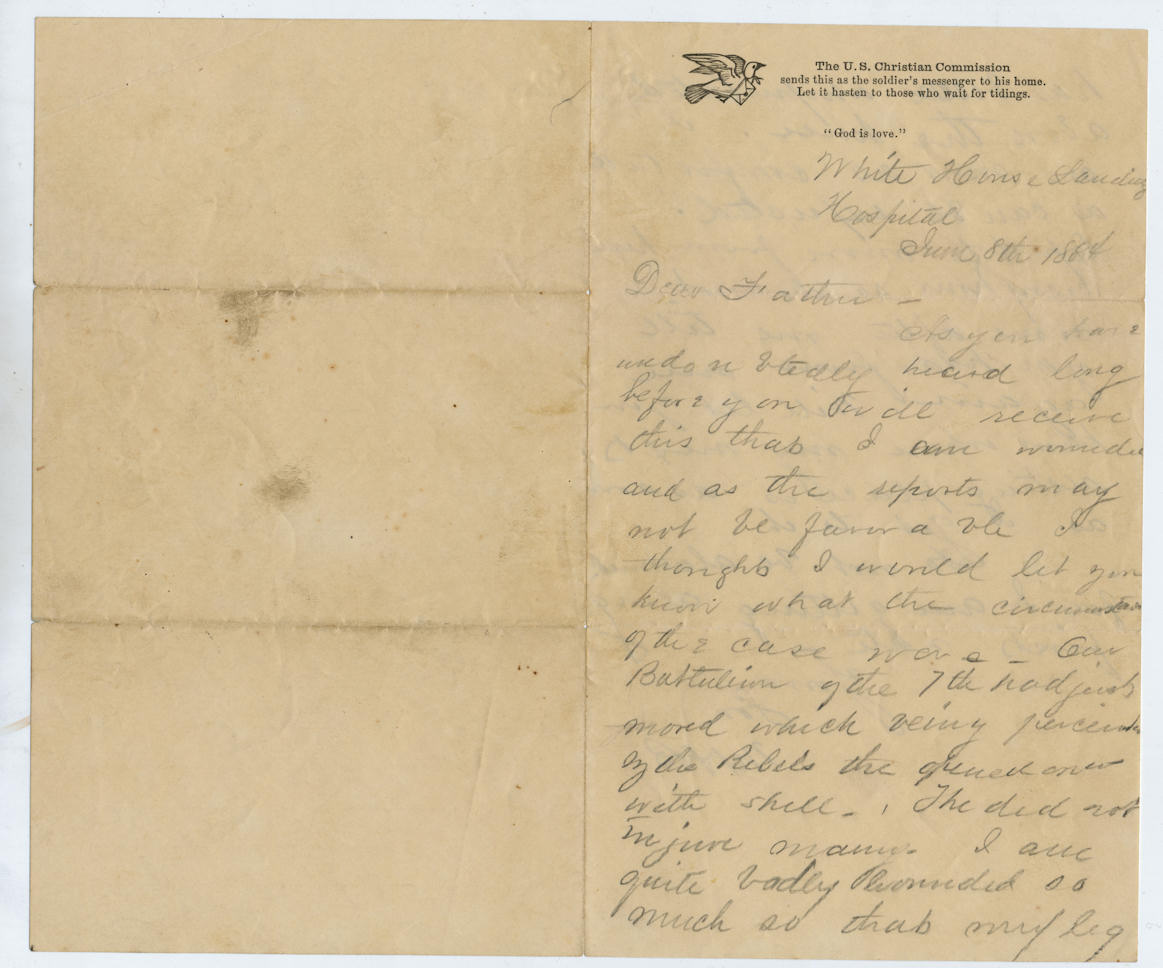 The U. S. Christian Commission
sends this as the soldier's messenger to his home.
Let it hasten to those who wait for tidings.
"God is love."
White House Landing
Hospital
June 8th 1864
Dear Father –
As you have
undoubtedly heard long
before you will receive
this that I am wounded
and as the reports may
not be favorable I
thought I would let you
know what the circumstan
of the case were – Our
Battalion of the 7th had just
moved which being perceived
by the Rebels the opened on us
with shell – The did not
injure many. I am
quite badly wounded so
much so that my leg